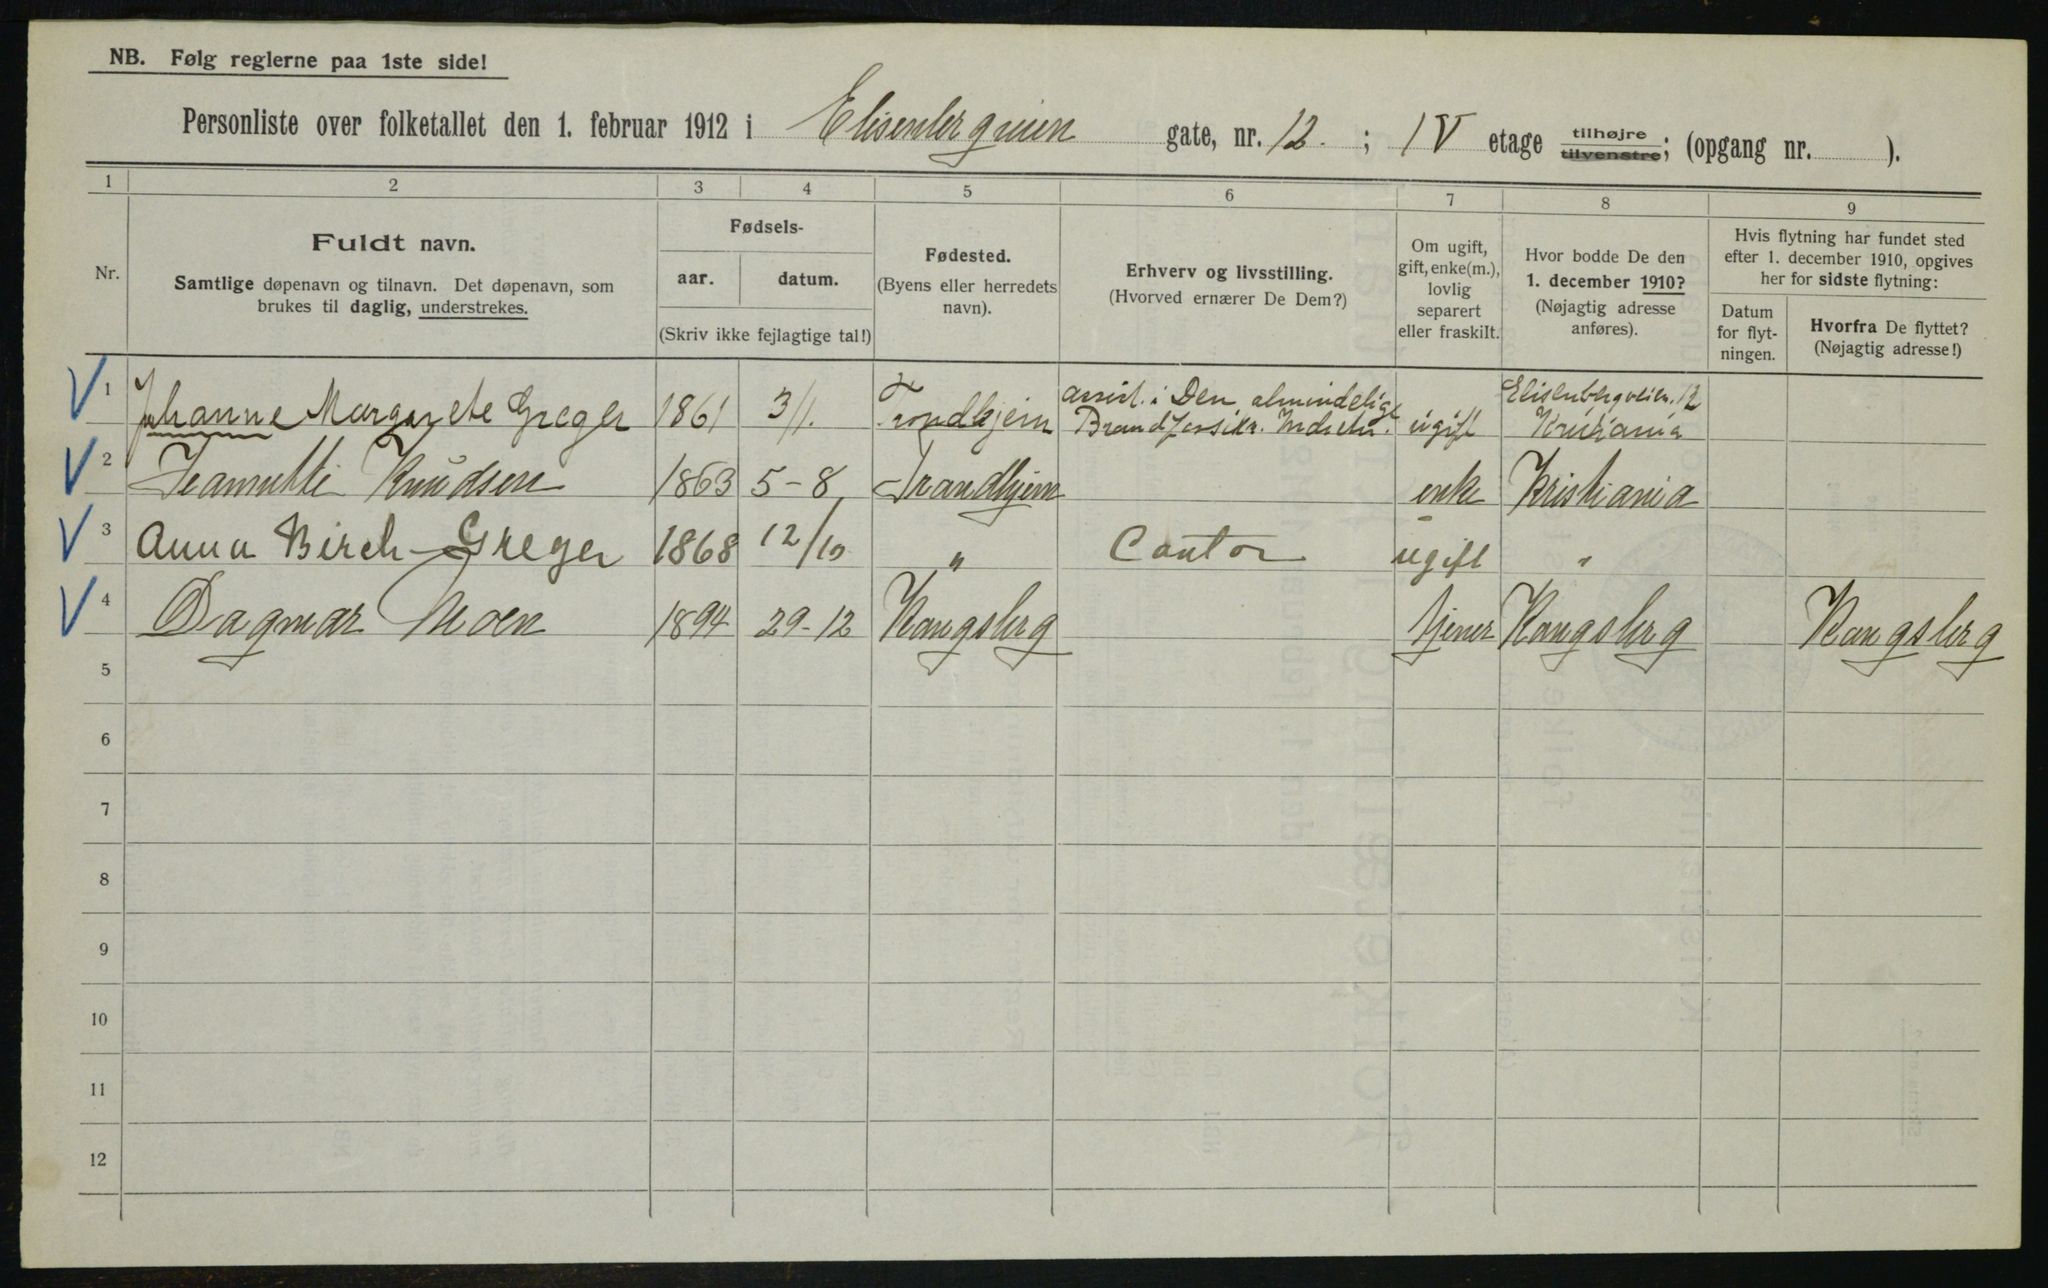 NB. Følg reglerne paa 1ste side!
Personliste over folketallet den 1. februar 1912 i Elisenbergveien gate, nr. 12. ; IV etage tilhøjre tilvenstre; (opgang nr. ).
1 2 3 4 5 6 7 8 9
Nr.
Fuldt navn.
Samtlige døpenavn og tilnavn. Det døpenavn, som
brukes til daglig, understrekes.
Fødsels-
aar. datum.
(Skriv ikke fejlagtige tal!)
Fødested.
(Byens eller herredets
navn).
Erhverv og livsstilling.
(Hvorved ernærer De Dem?)
Om ugift,
gift, enke(m.),
lovlig
separert
eller fraskilt.
Hvor bodde De den
1. december 1910?
(Nøjagtig adresse
anføres).
Hvis flytning har fundet sted
efter 1. december 1910, opgives
her for sidste flytning:
Datum
for flyt-
ningen.
Hvorfra De flyttet?
(Nøjagtig adresse!)
1 Johanne Margarete Greger 1861 3/1. Trondhjem assist. i Den almindelige
Brandforsikr. Indretn. ugift Elisenbergveien. 12
Kristiania
2 Jeannette Knudsen 1863 5-8 Trondhjem enke Kristiania
3 Anna Birch-Greger 1868 12/10 " Contor ugift "
4 Dagmar Moen 1894 29-12 Kongsberg tjener Kongsberg Kongsberg
5
6
7
8
9
10
11
12